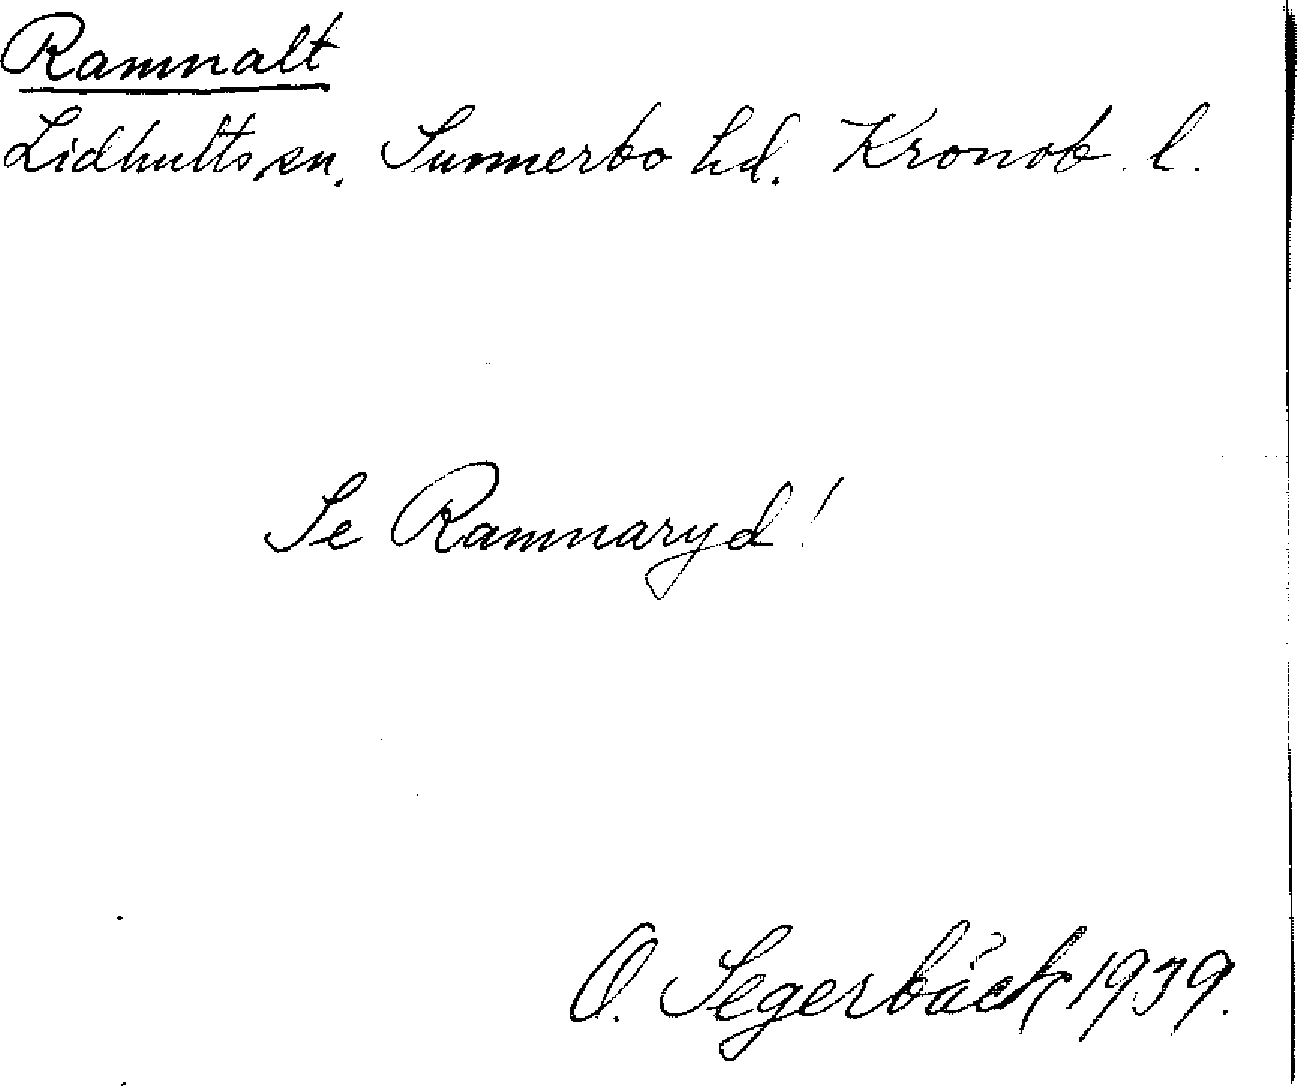 Ramnalt
Lidhults sn. Sunnerbo hd. Kronob. l.
Se Ramnaryd!
O. Segerbäck 1939.